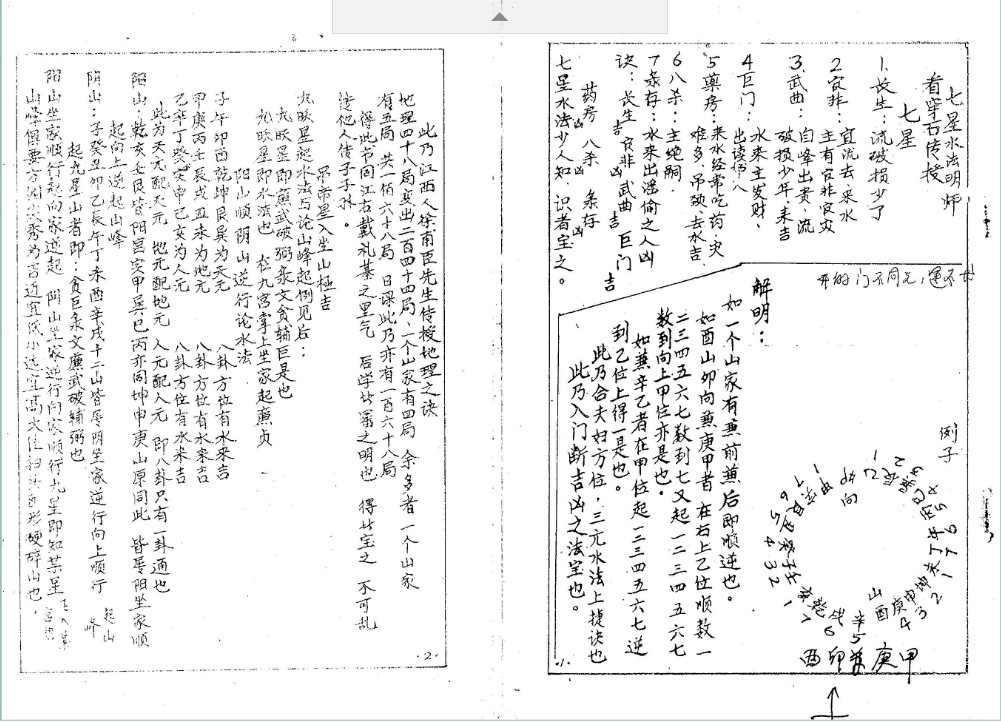 七星水法明师
看穿石传授
七星
1.长生:流破损少丁
2官非:宜流去来水
主有官非官灾
3.武曲:自峰出贵.流
破损少年.来吉
4巨门:水来主发财、
出读书人
5药房:来水经常吃药、灾
难多、吊颈去水吉.
6八杀:主绝嗣.
7条存:水来出淫偷之人凶
诀:长生吉官非凶武曲吉巨门吉
药房凶八杀凶条存凶
七星水法少人知.识者宝之。
解明:
如一个山家有兼前兼后即顺逆也。
如酉山卯向兼庚甲者在右上乙位顺数一
二三四五六七数到七又起一二三四五六七
数到向上甲位亦是也.
如兼辛乙者在甲位起一二三四五六七逆
到乙位上得一是也。
此乃合夫妇方位,三元水法上捷诀也
此乃入门断吉凶之法宝也。
例子
卯向
山酉
酉卯兼庚甲
·1·
此乃江西人徐南臣先生传授地理之诀
地理四十八局变出二百四十四局、一个山家有四局余多者一个山家
有五局共一佰六十八局日课此乃亦有一百六十八局
得此书同江右戴礼基之里气后学此书深之明也得此宝之不可乱
传他人传子子孙。
吊帝星入坐山极吉
阳山顺阴山逆行论水法
九曜星起水法与论山峰起例见后:
九曜星即廉武破弼条文贪辅巨是也
九曜星即水法也在九宫掌上坐家起廉贞
子午卯酉乾坤艮巽为天元八卦方位有水来吉
甲庚丙壬辰戌丑未为地元八卦方位有水来吉
乙辛丁癸寅申巳亥为人元八卦方位有水来吉
此为天元配天元地元配地元人元配人元即八卦只有一卦通也
阳山:乾亥壬艮皆阳宫寅甲巽巳丙亦同坤申庚山原同此皆居阳坐家顺
起向上逆起山峰
阴山:子癸丑卯乙辰午丁未酉辛戌十二山皆居阴坐家逆行向上顺行起山峰
起九星山者即:贪巨条文廉武破辅弼也
阳山坐家顺行起向家逆起阴山坐家逆行向家顺行九星即知某星
山峰俱要方圆尖秀为吉近宜低小远宜高大
·2·